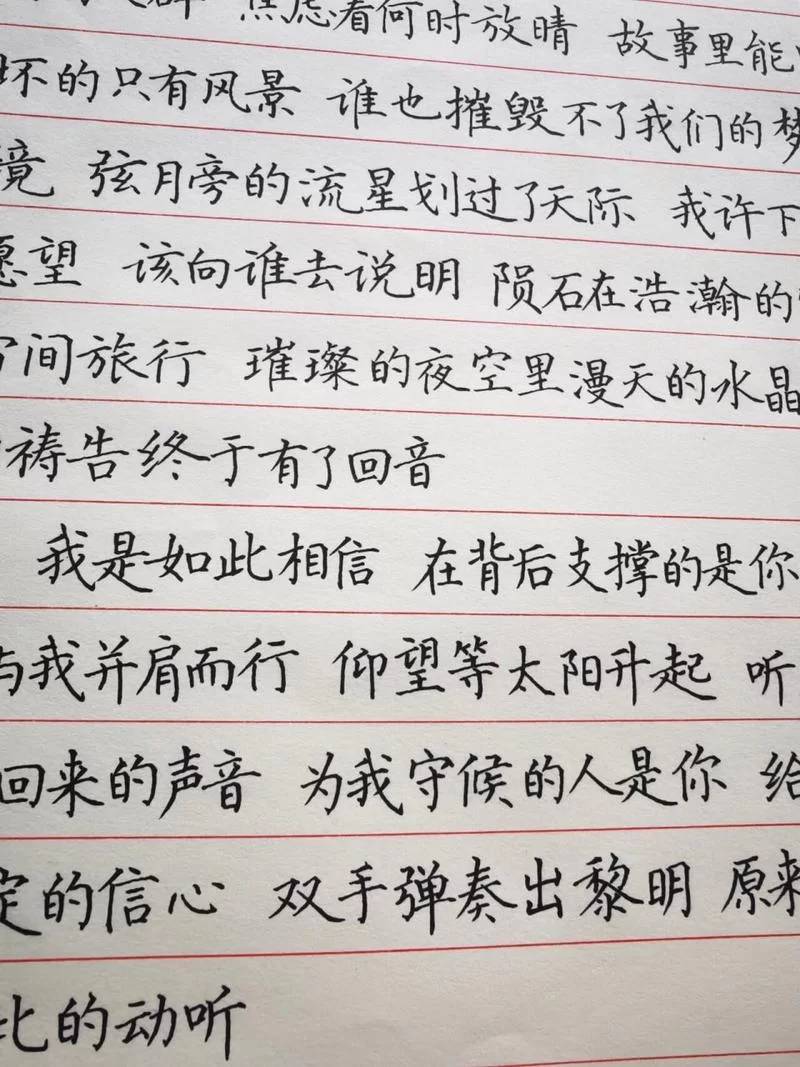 焦虑着何时放晴 故事里能
坏的只有风景 谁也摧毁不了我们的梦
境 弦月旁的流星划过了天际 我许下
愿望 该向谁去说明 陨石在浩瀚的
间旅行 璀璨的夜空里漫天的水晶
祷告终于有了回音
我是如此相信 在背后支撑的是你
与我并肩而行 仰望等太阳升起 听
回来的声音 为我守候的人是你 给
定的信心 双手弹奏出黎明 原来
比的动听